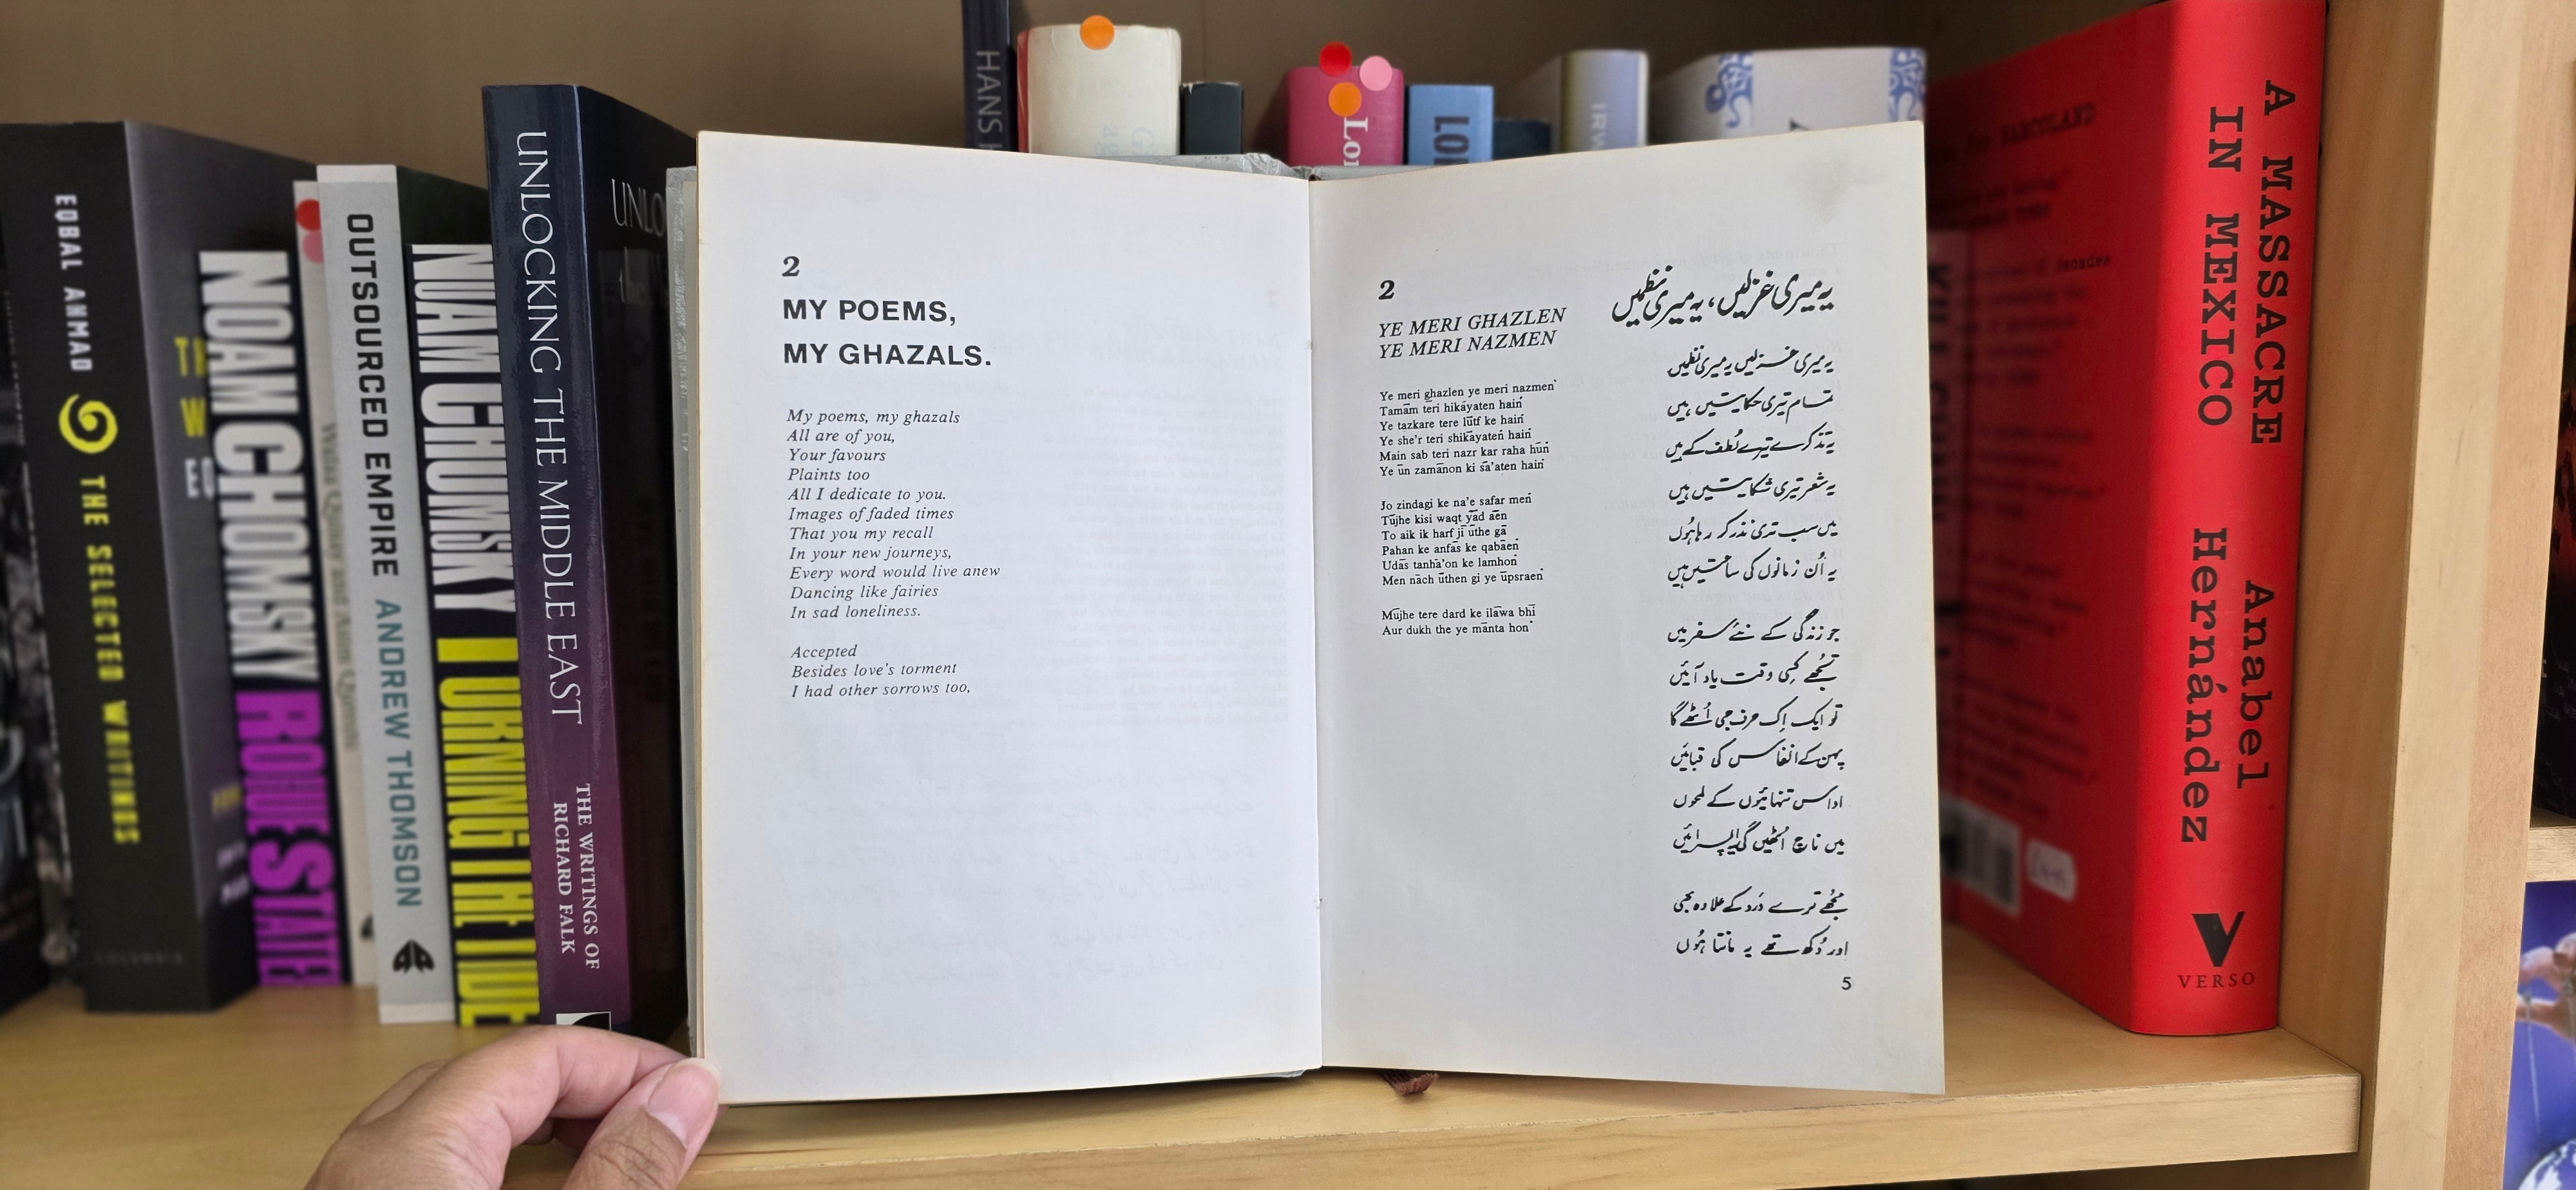 EQBAL AHMAD THE SELECTED WRITINGS
COLUMBIA
NOAM CHOMSKY ROGUE STATES
OUTSOURCED EMPIRE ANDREW THOMSON
NOAM CHOMSKY TURNING THE TIDE
UNLOCKING THE MIDDLE EAST
THE WRITINGS OF
RICHARD FALK
HANS
2
MY POEMS,
MY GHAZALS.
My poems, my ghazals
All are of you,
Your favours
Plaints too
All I dedicate to you.
Images of faded times
That you my recall
In your new journeys,
Every word would live anew
Dancing like fairies
In sad loneliness.
Accepted
Besides love's torment
I had other sorrows too,
2
YE MERI GHAZLEN
YE MERI NAZMEN
Ye meri ghazlen ye meri nazmen̄
Tamām teri hikāyaten hain̄
Ye tazkare tere lūtf ke hain̄
Ye she'r teri shikāyaten̄ hain̄
Main sab teri nazr kar raha hūn̄
Ye ūn zamānon ki sā'aten hain̄
Jo zindagi ke na'e safar men̄
Tūjhe kisi waqt yād aēn
To aik ik harf ji ūthe gā
Pahan ke anfās ke qabāen̄
Udās tanhā'on ke lamhon̄
Men nāch ūthen gi ye ūpsraen̄
Mūjhe tere dard ke ilāwa bhī
Aur dukh the ye mānta hon̄
یہ میری غزلیں، یہ میری نظمیں
یہ میری غزلیں یہ میری نظمیں
تمام تیری حکایتیں ہیں
یہ تذکرے تیرے لُطف کے ہیں
یہ شعر تیری شکایتیں ہیں
میں سب تری نذر کر رہا ہُوں
یہ اُن زمانوں کی ساعتیں ہیں
جو زندگی کے نئے سفر میں
تجھے کِسی وقت یاد آئیں
تو ایک اِک حرف جی اُٹھے گا
پہن کے انفاس کی قبائیں
اداس تنہائیوں کے لمحوں
میں ناچ اُٹھیں گی اپسرائیں
مُجھے ترے درد کے علاوہ بھی
اور دُکھ تھے یہ مانتا ہُوں
5
A MASSACRE
IN MEXICO
Anabel
Hernández
VERSO